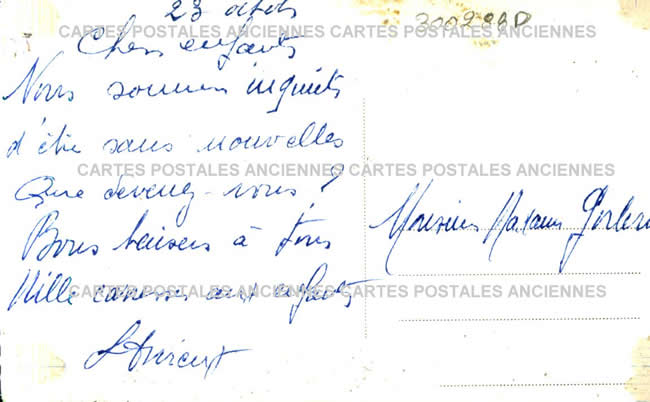 23
300289D
CARTES POSTALES ANCIENNES CARTES POSTALES ANCIENNES
Chers enfants
Nous sommes inquiets
d'être sans nouvelles
CARTES POSTALES ANCIENNES CARTES POSTALES ANCIENNES
Que devenez-vous ?
Bons baisers à tous
Monsieur Madame
CARTES POSTALES ANCIENNES CARTES POSTALES ANCIENNES
Mille caresses aux enfants